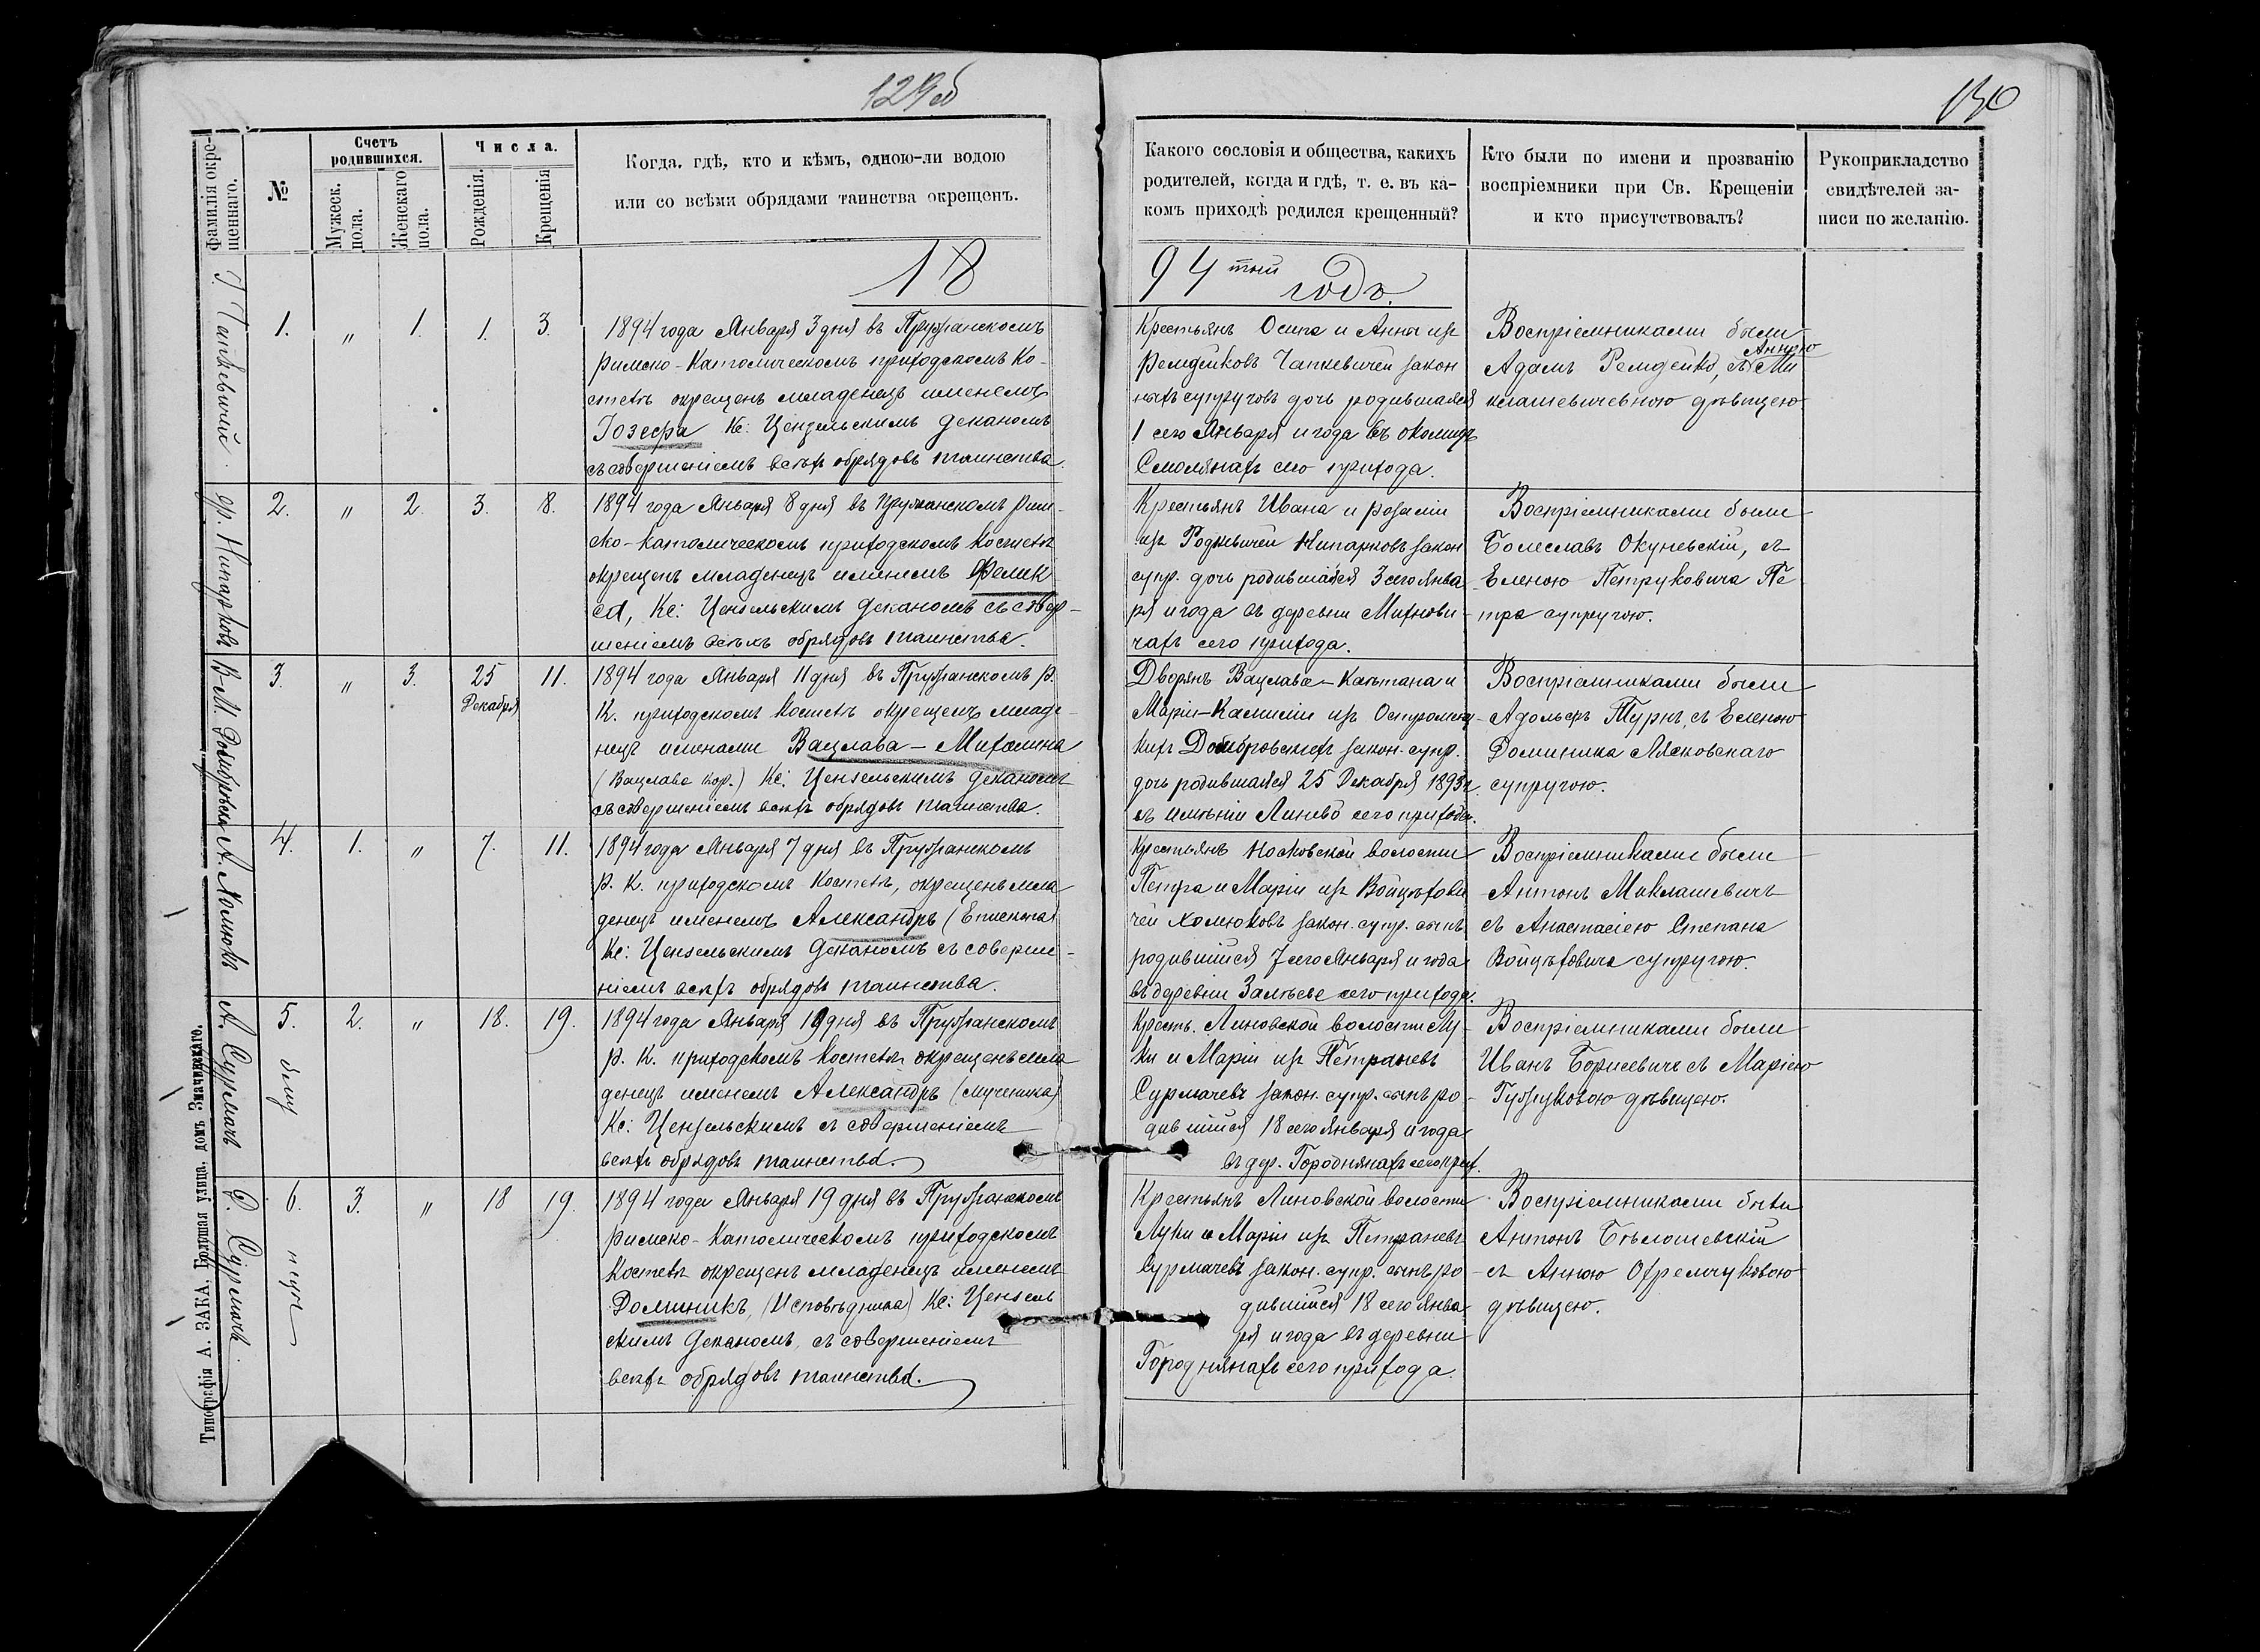 129об
130
Фамилія окре-
щеннаго.
№
Счетъ
родившихся.
Мужеск.
пола.
Женскаго
пола.
Числа.
Рожденія.
Крещенія
Когда, гдѣ, кто и кѣмъ, одною-ли водою
или со всѣми обрядами таинства окрещенъ.
Какого сословія и общества, какихъ
родителей, когда и гдѣ, т. е. въ ка-
комъ приходѣ родился крещенный?
Кто были по имени и прозванію
воспріемники при Св. Крещеніи
и кто присутствовалъ?
Рукоприкладство
свидѣтелей за-
писи по желанію.
18
94 тый
годъ.
1. " 1. 1. 3.
1894 года Января 3 дня въ Пружанскомъ
Римско-Католическомъ приходскомъ Ко-
стелѣ окрещенъ младенецъ именемъ
Іозефа Кс: Цензельскимъ Деканомъ
съ совершеніемъ всѣхъ обрядовъ таинства.
Крестьянъ Осипа и Анны изъ
Ремдейковъ Чапкевичей закон
ныхъ супруговъ дочь родившаяся
1 сего Января и года въ околицѣ
Смолянахъ сего прихода.
Воспріемниками были
Адамъ Ремдейко, съ Анною Ми
клашевичевною дѣвицею
гр. Нипарковъ
2. " 2. 3. 8.
1894 года Января 8 дня въ Пружанскомъ Рим-
ско-Католическомъ приходскомъ Костелѣ
окрещенъ младенецъ именемъ Фелик
са, Кс: Цензельскимъ Деканомъ съ совер-
шеніемъ всѣхъ обрядовъ таинства.
Крестьянъ Ивана и Розаліи
изъ Родкевичей Нипарковъ закон
супр. дочь родившаяся 3 сего Янва
ря и года въ деревни Михнови-
чахъ сего прихода.
Воспріемниками были
Болеславъ Окуневскій, съ
Еленою Петруковича Пе
тра супругою.
3. " 3. 25 11.
Декабря
1894 года Января 11 дня въ Пружанскомъ Р.
К. приходскомъ Костелѣ окрещенъ младе-
нецъ именами Вацлава-Михалина
(Вацлава кор.) Кс: Цензельскимъ Деканомъ
съ совершеніемъ всѣхъ обрядовъ таинства.
Дворянъ Вацлава-Каетана и
Маріи-Камиліи изъ
кихъ Домбровскихъ закон. супр.
дочь родившаяся 25 Декабря 1893 г.
въ имѣніи Линево сего прихода.
Воспріемниками были
Адольфъ Турнъ, съ Еленою
Доминика Лясковскаго
супругою.
А. Холюкъ
4. 1. " 7. 11.
1894 года Января 7 дня въ Пружанскомъ
Р. К. приходскомъ Костелѣ, окрещенъ мла
денецъ именемъ Александръ (Епископа)
Кс: Цензельскимъ Деканомъ съ соверше-
ніемъ всѣхъ обрядовъ таинства.
Крестьянъ Носковской волости
Петра и Маріи изъ Войцѣхови
чей Холюковъ закон. супр. сынъ
родившійся 7 сего Января и года
въ деревни Залѣсье сего прихода.
Воспріемниками были
Антонъ Миклашевичъ
съ Анастасіею Степана
Войцѣховича супругою.
А. Сурмачъ
5. 2. " 18. 19.
1894 года Января 19 дня въ Пружанскомъ
Р. К. приходскомъ Костелѣ окрещенъ мла
денецъ именемъ Александръ (мученика)
Кс: Цензельскимъ съ совершеніемъ
всѣхъ обрядовъ таинства.
Кресть. Линовской волости Лу-
ки и Маріи изъ Петраневъ
Сурмачевъ закон. супр. сынъ ро-
дившійся 18 сего Января и года
въ дер. Городнянахъ сего прих.
Воспріемниками были
Иванъ Борисевичъ съ Маріею
Гужуковою дѣвицею.
Д. Сурмачъ
6. 3. " 18 19.
1894 года Января 19 дня въ Пружанскомъ
Римско-Католическомъ приходскомъ
Костелѣ окрещенъ младенецъ именемъ
Доминикъ, (Исповѣдника) Кс: Цензель
скимъ Деканомъ, съ совершеніемъ
всѣхъ обрядовъ таинства.
Крестьянъ Линовской волости
Луки и Маріи изъ Петраневъ
Сурмачевъ закон. супр. сынъ ро-
дившійся 18 сего Янва
ря и года въ деревни
Городнянахъ сего прихода.
Воспріемниками были
Антонъ Бѣлошевскій
съ Анною Офремчуковою
дѣвицею.
Типографія А. ЗАКА. Большая улица, домъ Значинскаго.